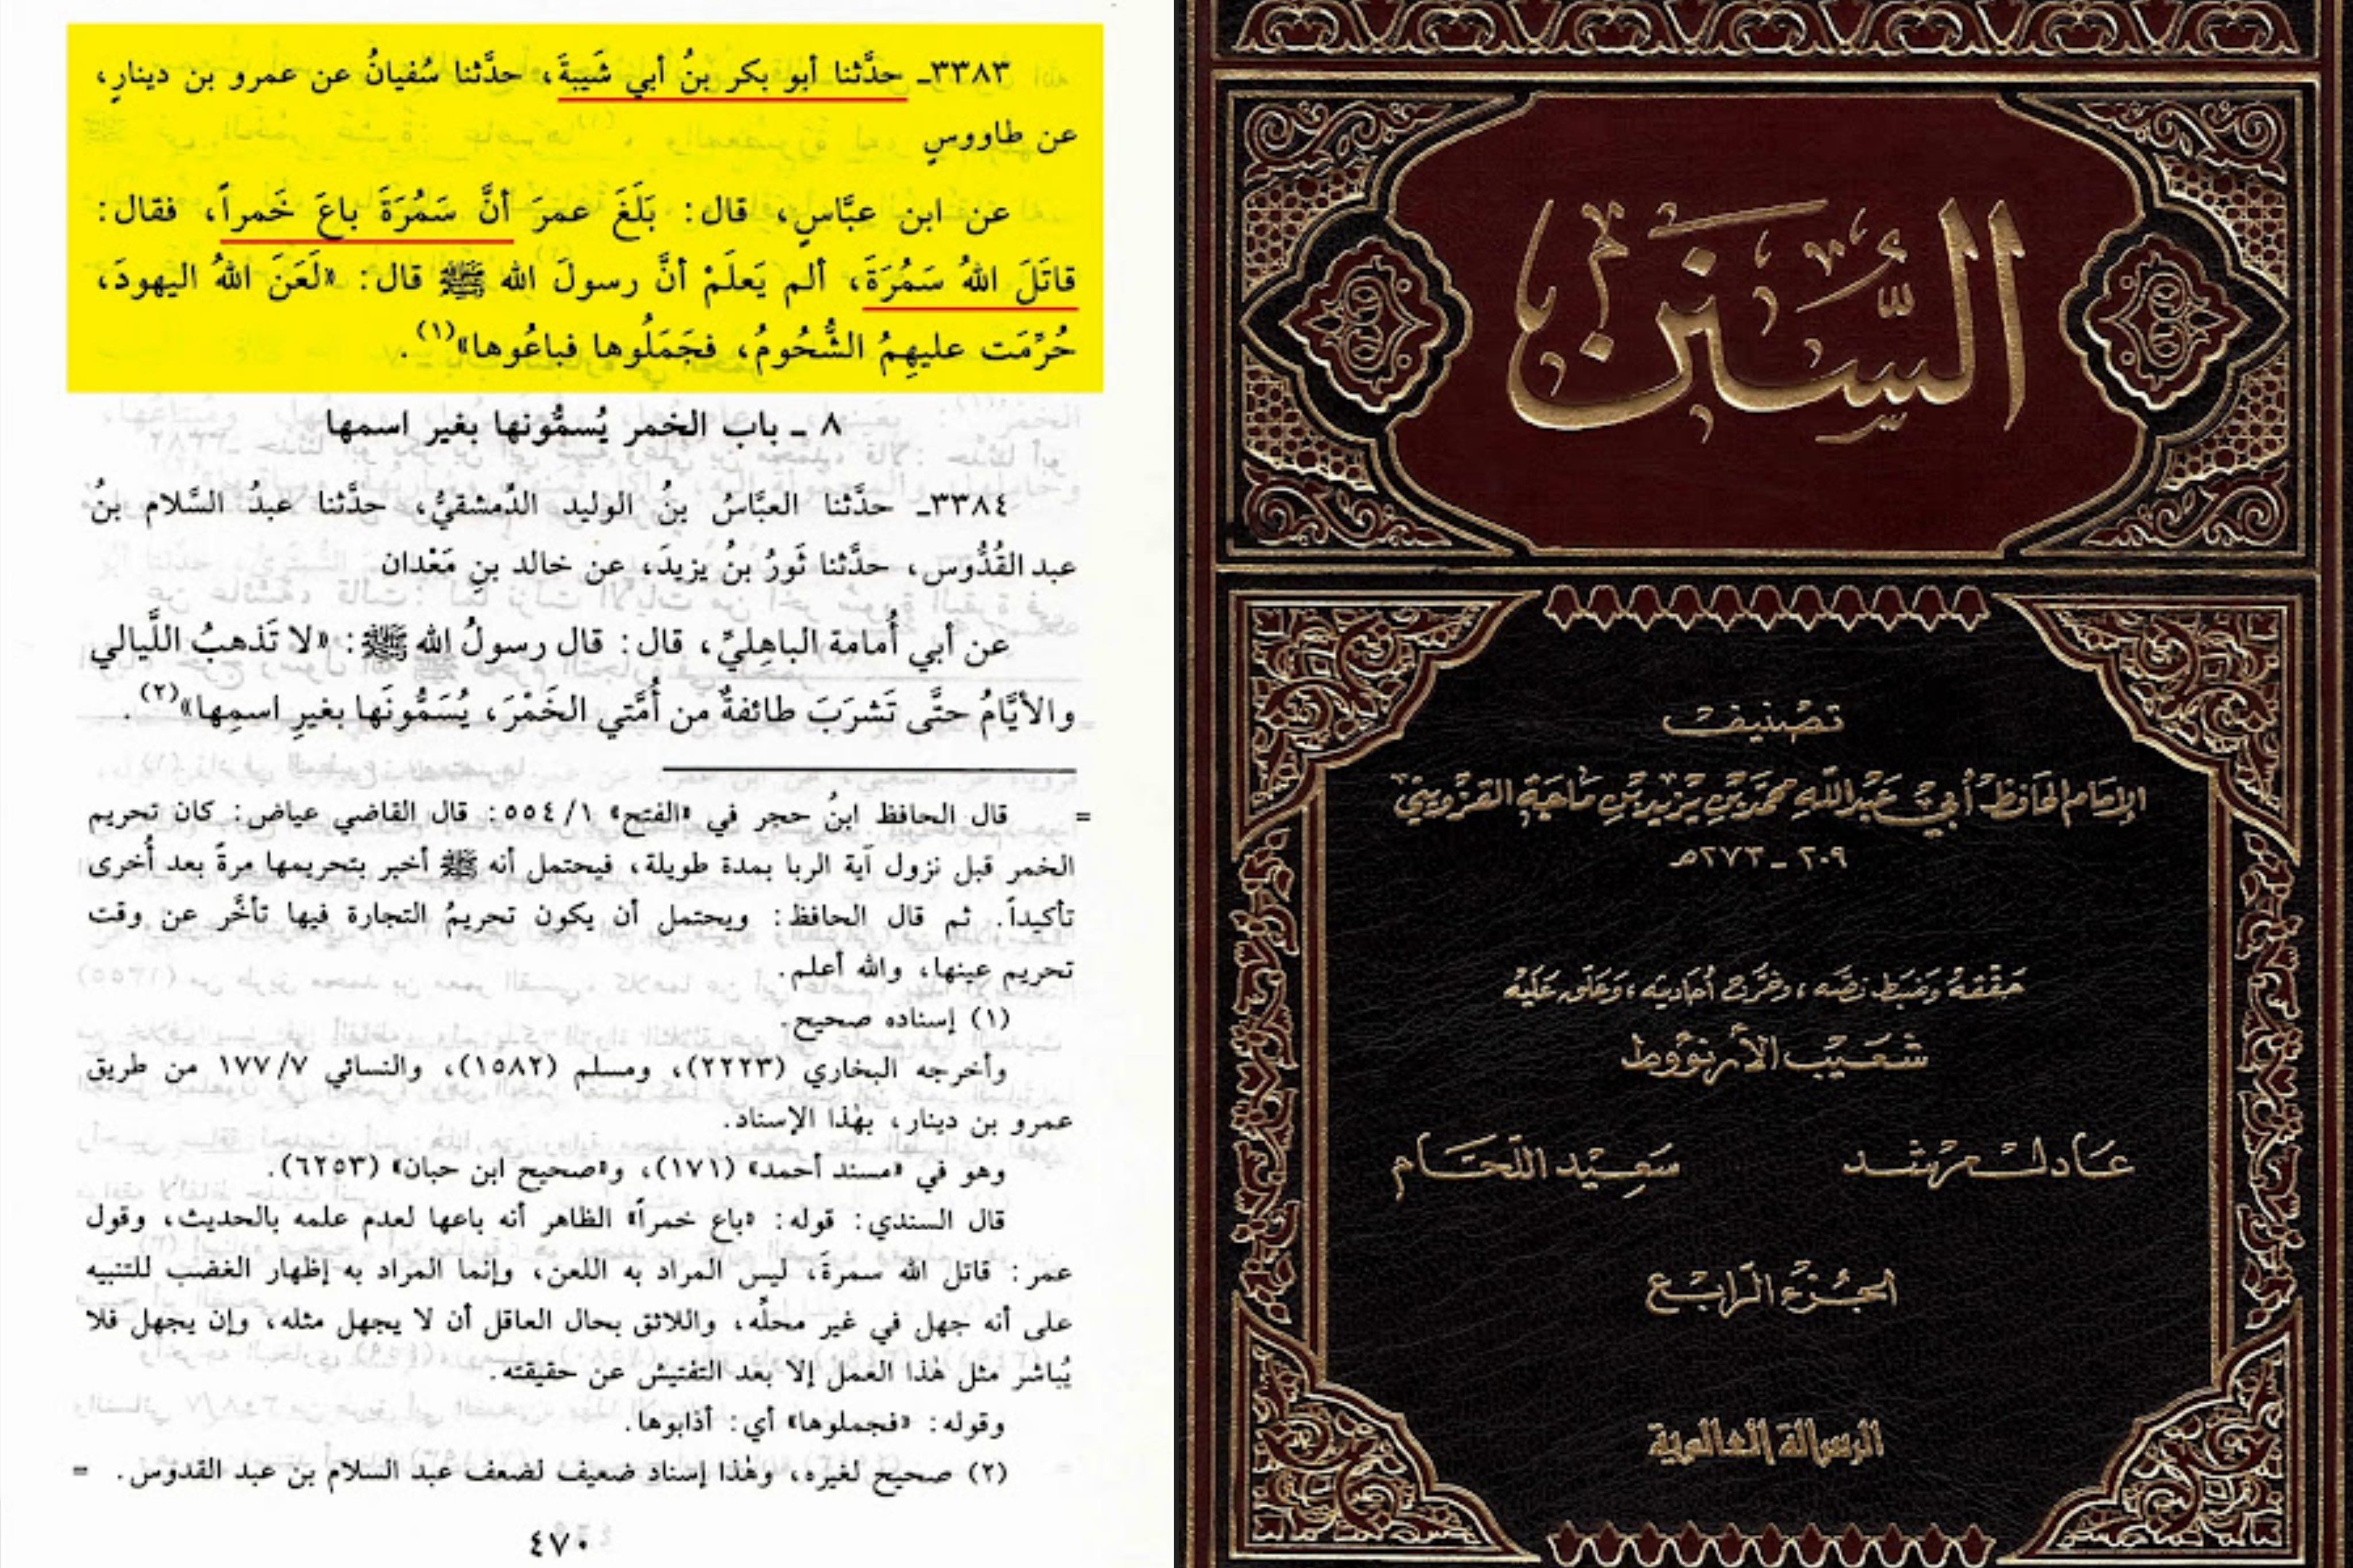 ٣٣٨٣ـ حدَّثنا أبو بكر بنُ أبي شَيبةَ، حدَّثنا سُفيانُ عن عمرو بن دينارٍ،
عن طاووسٍ
عن ابن عبَّاسٍ، قال: بَلَغَ عمرَ أنَّ سَمُرَةَ باعَ خَمراً، فقال:
قاتَلَ اللهُ سَمُرَةَ، ألم يَعلَمْ أنَّ رسولَ الله ﷺ قال: «لَعَنَ اللهُ اليهودَ،
حُرِّمَت عليهِمُ الشُّحُومُ، فجَمَلُوها فباعُوها»(١).
٨ ـ باب الخمر يُسمُّونها بغير اسمها
٣٣٨٤ـ حدَّثنا العبَّاسُ بنُ الوليد الدِّمشقيُّ، حدَّثنا عبدُ السَّلام بنُ
عبد القُدُّوس، حدَّثنا ثَورُ بنُ يزيدَ، عن خالد بنِ مَعْدان
عن أبي أُمامة الباهِليِّ، قال: قال رسولُ الله ﷺ: «لا تَذهبُ اللَّيالي
والأيَّامُ حتَّى تَشرَبَ طائفةٌ من أُمَّتي الخَمْرَ، يُسَمُّونَها بغيرِ اسمِها»(٢).
= قال الحافظ ابنُ حجر في «الفتح» ١/ ٥٥٤: قال القاضي عياض: كان تحريم
الخمر قبل نزول آية الربا بمدة طويلة، فيحتمل أنه ﷺ أخبر بتحريمها مرةً بعد أُخرى
تأكيداً. ثم قال الحافظ: ويحتمل أن يكون تحريمُ التجارة فيها تأخَّر عن وقت
تحريم عينها، والله أعلم.
(١) إسناده صحيح.
وأخرجه البخاري (٢٢٢٣)، ومسلم (١٥٨٢)، والنسائي ٧/ ١٧٧ من طريق
عمرو بن دينار، بهٰذا الإسناد.
وهو في «مسند أحمد» (١٧١)، و«صحيح ابن حبان» (٦٢٥٣).
قال السندي: قوله: «باع خمراً» الظاهر أنه باعها لعدم علمه بالحديث، وقول
عمر: قاتل الله سمرةَ، ليس المراد به اللعن، وإنما المراد به إظهار الغضب للتنبيه
على أنه جهل في غير محلِّه، واللائق بحال العاقل أن لا يجهل مثله، وإن يجهل فلا
يُباشر مثل هٰذا العمل إلا بعد التفتيش عن حقيقته.
وقوله: «فجملوها» أي: أذابوها.
(٢) صحيح لغيره، وهٰذا إسناد ضعيف لضعف عبد السلام بن عبد القدوس. =
٤٧٠
السُّنَن
تصنيف
الإمام الحافظ أبي عبد الله محمد بن يزيد بن ماجة القزويني
٢٠٩ ـ ٢٧٣هـ
حققه وضبط نصه، وخرج أحاديثه، وعلق عليه
شعيب الأرنؤوط
عادل مرشد سعيد اللحام
الجزء الرابع
الرسالة العالمية